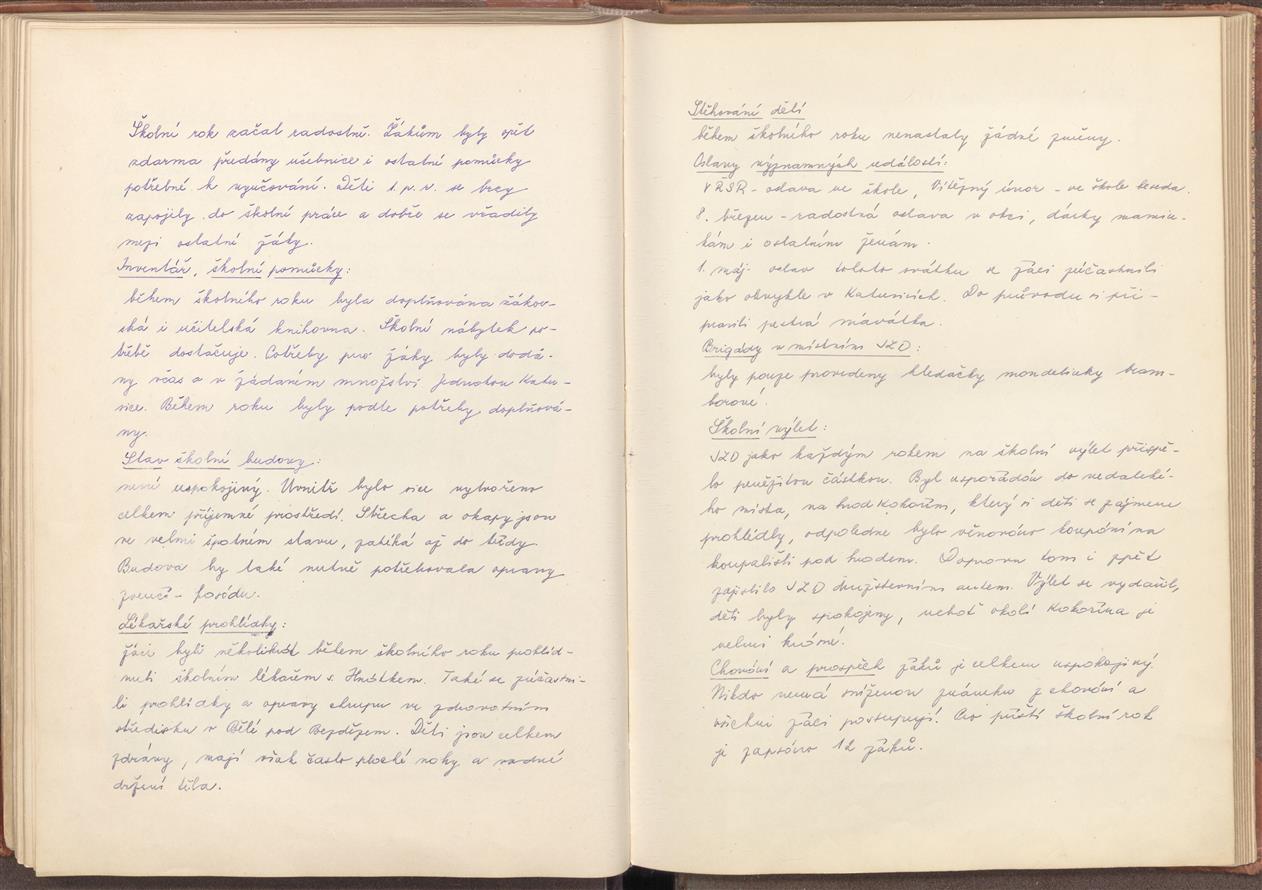 Školní rok začal radostně. Žákům byly opět
zdarma předány učebnice i ostatní pomůcky
potřebné k vyučování. Děti 1. p. v. se brzy
zapojily do školní práce a dobře se včadily
mezi ostatní žáky.
Inventář, školní pomůcky:
během školního roku byla doplňována žákov-
ská i učitelská knihovna. Školní nábytek po-
třebě dostačuje. Potřeby pro žáky byly dodá-
ny včas a v žádaném množství Jednotou Katu-
sice. Během roku byly podle potřeby doplňová-
ny.
Stav školní budovy:
není uspokojivý. Uvnitř bylo sice vytvořeno
celkem příjemné prostředí. Střecha a okapy jsou
ve velmi špatném stavu, zatéká až do třídy.
Budova by také nutně potřebovala opravy
zvenčí - fasádu.
Lékařské prohlídky:
žáci byli několikrát během školního roku prohléd-
nuti školním lékařem s. Hmátkem. Také se zúčastni-
li prohlídky a opravy chrupu ve zdravotním
středisku v Bělé pod Bezdězem. Děti jsou celkem
zdrávy, mají však často ploché nohy a vadné
držení těla.
Stěhování dětí
během školního roku nenastaly žádné změny.
Oslavy významných událostí:
VŘSR - oslava ve škole, Vítězný únor - ve škole beseda.
8. březen - radostná oslava v obci, dárky mamin-
kám i ostatním ženám.
1. máj. oslav tohoto svátku se žáci zúčastnili
jako obvykle v Katusicích. Do průvodu si při-
pravili pestrá mávátka.
Brigády v místním JZD:
byly pouze provedeny hledačky mandelinky bram-
borové.
Školní výlet:
JZD jako každým rokem na školní výlet přispě-
lo peněžitou částkou. Byl uspořádán do nedaleké-
ho místa, na hrad Kokořín, který si děti se zájmem
prohlédly, odpoledne bylo věnováno koupání na
koupališti pod hradem. Dopravu tam i zpět
zajistilo JZD družstevním autem. Výlet se vydařil,
děti byly spokojeny, neboť okolí Kokořína je
velmi krásné.
Chování a prospěch žáků je celkem uspokojivý.
Nikdo nemá sníženou známku z chování a
všichni žáci postupují. Pro příští školní rok
je zapsáno 12 žáků.